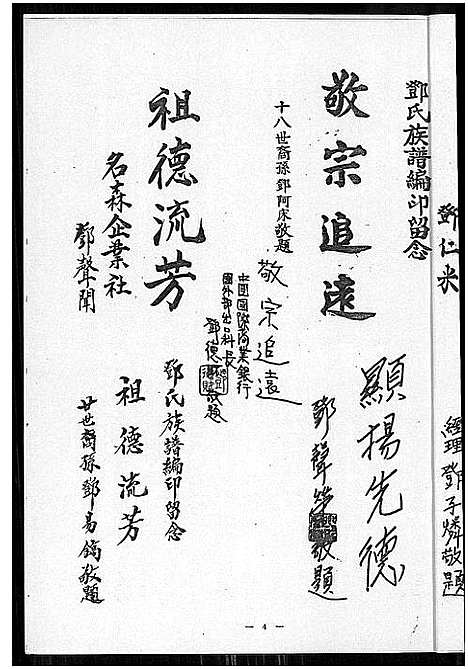 鄧仁米
經理鄧子燐敬題
鄧氏族譜編印留念
敬宗追遠
十八世裔孫鄧阿床敬題
顯揚先德
鄧聲
敬題
敬宗追遠
中國國際商業銀行
國外部出口科長
鄧德
敬題
祖德流芳
名森企業社
鄧聲開
鄧氏族譜編印留念
祖德流芳
廿世裔孫鄧易鏑敬題
— 4 —